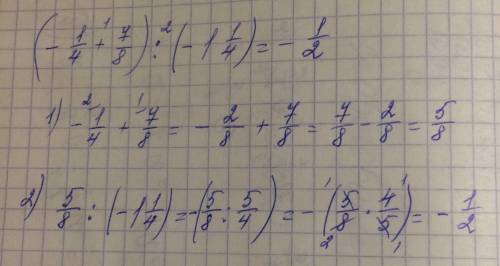 (-1/4 +¹ 7/8) :² (-1 1/4) = -1/2
1) -1²/4 + 7¹/8 = -2/8 + 7/8 = 7/8 - 2/8 = 5/8
2) 5/8 : (-1 1/4) = -(5/8 : 5/4) = -(5¹/8₂ · 4¹/5₁) = -1/2